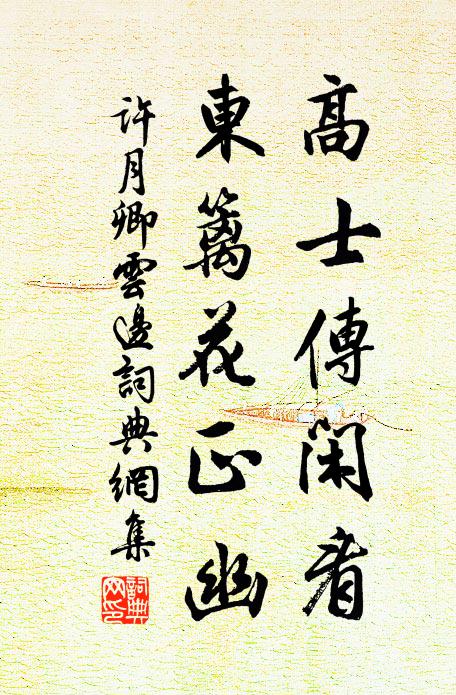 高士傳閑看
東籬花正幽
許月卿雲邊詞典網集
詞典網印